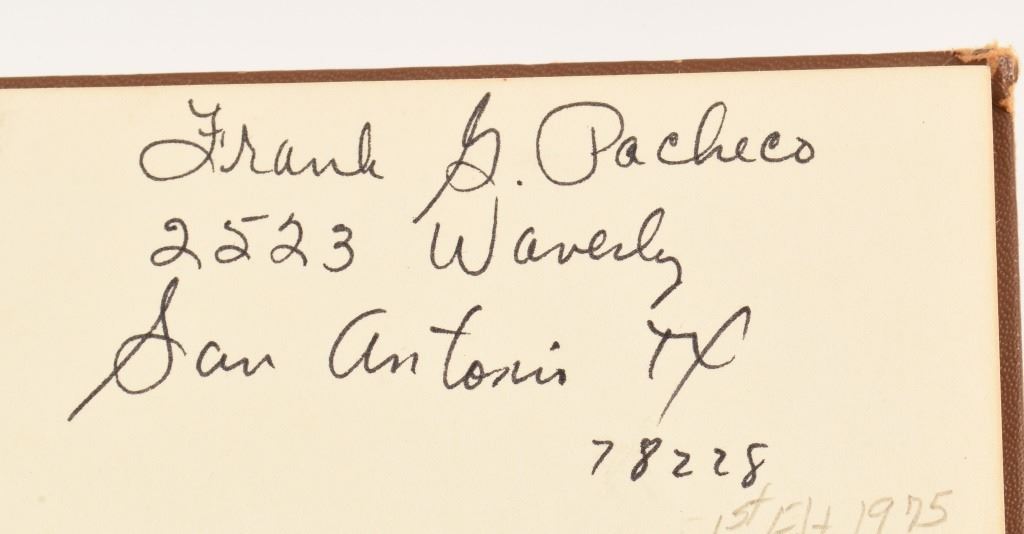 Frank G. Pacheco
2523 Waverly
San Antonio TX
78228
1st 1975